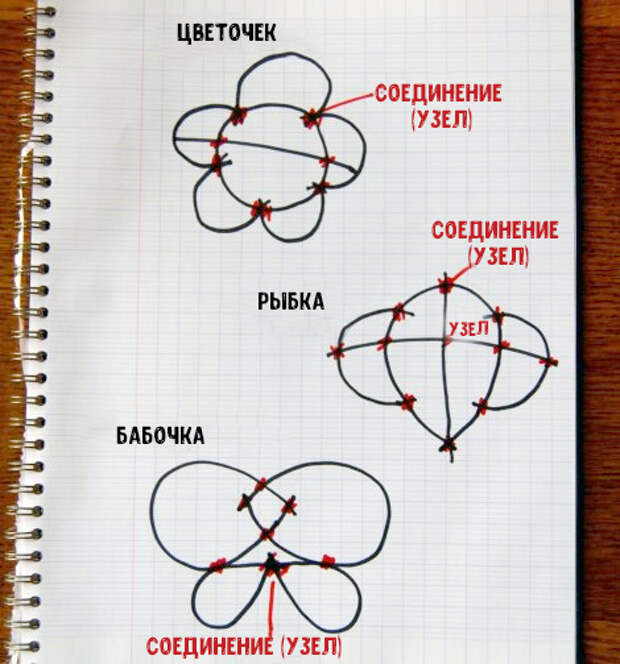 ЦВЕТОЧЕК
СОЕДИНЕНИЕ
(УЗЕЛ)
СОЕДИНЕНИЕ
(УЗЕЛ)
РЫБКА
УЗЕЛ
БАБОЧКА
СОЕДИНЕНИЕ (УЗЕЛ)